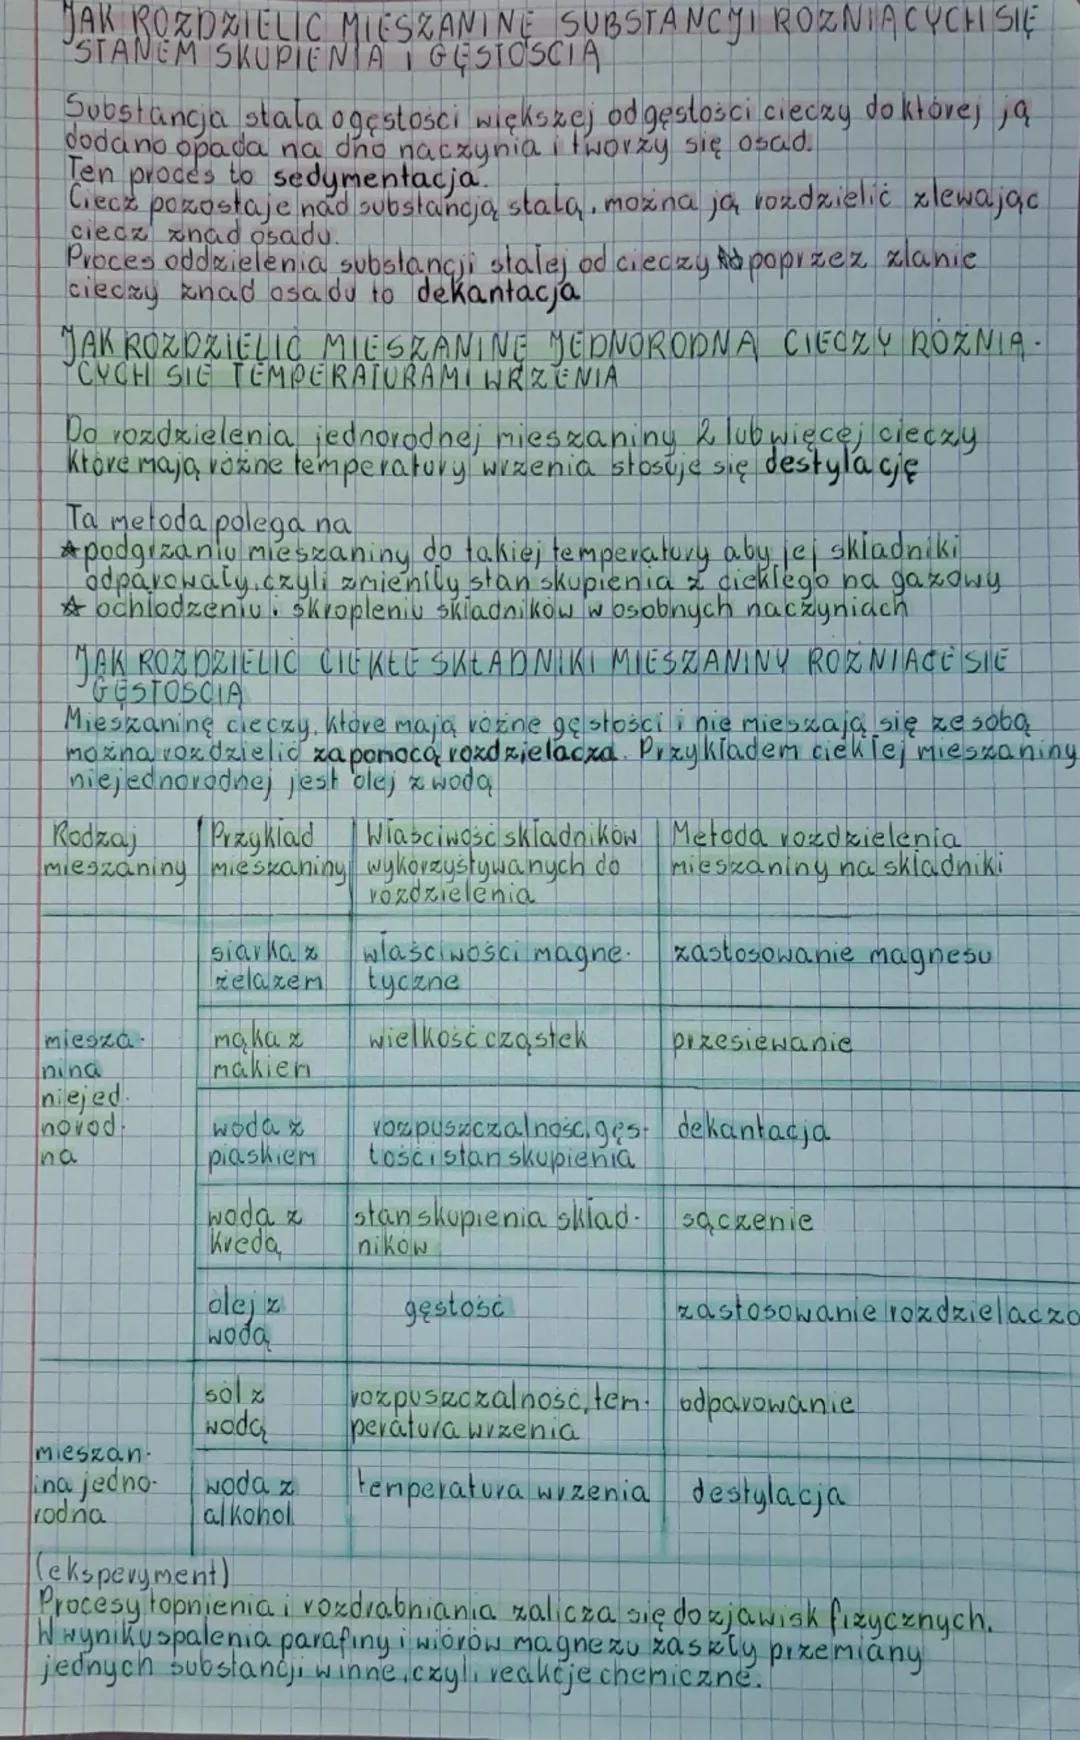 JAK ROZDZIELIC MIESZANINĘ SUBSTANCJI ROZNIĄCYCH SIĘ
STANEM SKUPIENIA I GĘSTOSCIĄ
Substancja stała o gęstości większej od gęstości cieczy do której ją
dodano opada na dno naczynia i tworzy się osad.
Ten proces to sedymentacja.
Ciecz pozostaje nad substancją stałą, można ją rozdzielić zlewając
ciecz znad osadu.
Proces oddzielenia substancji stałej od cieczy poprzez zlanie
cieczy znad osadu to dekantacja
JAK ROZDZIELIC MIESZANINĘ JEDNORODNĄ CIECZY RÓŻNIĄ-
CYCH SIĘ TEMPERATURAMI WRZENIA
Do rozdzielenia jednorodnej mieszaniny 2 lub więcej cieczy
które mają różne temperatury wrzenia stosuje się destylację
Ta metoda polega na
☆ podgrzaniu mieszaniny do takiej temperatury aby jej składniki
odparowały, czyli zmieniły stan skupienia z ciekłego na gazowy
☆ ochłodzeniu i skropleniu składników w osobnych naczyniach
JAK ROZDZIELIC CIEKŁE SKŁADNIKI MIESZANINY ROZNIĄCE SIĘ
GĘSTOSCIĄ
Mieszaninę cieczy, które mają różne gęstości i nie mieszają się ze sobą
można rozdzielić za pomocą rozdzielacza. Przykładem ciekłej mieszaniny
niejednorodnej jest olej z wodą
Rodzaj mieszaniny | Przykład mieszaniny | Właściwość składników | Metoda rozdzielenia
wykorzystywanych do | mieszaniny na składniki
rozdzielenia
siarka z | właściwości magne- | zastosowanie magnesu
żelazem | tyczne
miesza- | mąka z | wielkość cząstek | przesiewanie
nina | makiem
niejed-
norod- | woda z | rozpuszczalność, gęs- | dekantacja
na | piaskiem | tość i stan skupienia
woda z | stan skupienia skład- | sączenie
kredą | ników
olej z | gęstość | zastosowanie rozdzielacza
wodą
sól z | rozpuszczalność, tem- | odparowanie
wodą | peratura wrzenia
mieszan-
ina jedno- | woda z | temperatura wrzenia | destylacja
rodna | alkohol
(eksperyment)
Procesy topnienia i rozdrabniania zalicza się do zjawisk fizycznych.
W wyniku spalenia parafiny i wiórów magnezu zaszły przemiany
jednych substancji w inne, czyli reakcje chemiczne.